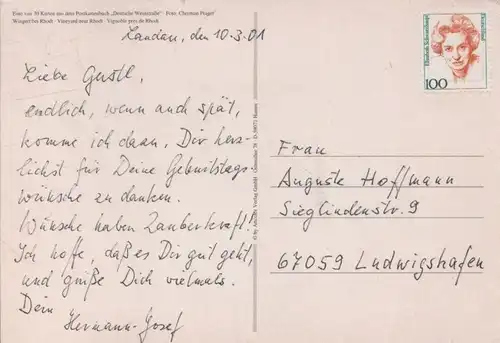 Eine von 30 Karten aus dem Postkartenbuch „Deutsche Weinstraße“ · Foto:
Wingert bei Rhodt · Vineyard near Rhodt · Vignoble près de Rhodt
Landau, den 10-3.01
Liebe Gustl,
endlich, wenn auch spät,
komme ich daran, Dir herz-
lichst für Deine Geburtstags-
wünsche zu danken.
Wünsche haben Zauberkraft!
Ich hoffe, daß es Dir gut geht,
und grüße Dich vielmals.
Dein
Hermann-Josef
© by Verlag GmbH
Elisabeth Schwarzhaupt
Deutschland
100
Frau
Auguste Hoffmann
Sieglindenstr. 9
67059 Ludwigshafen